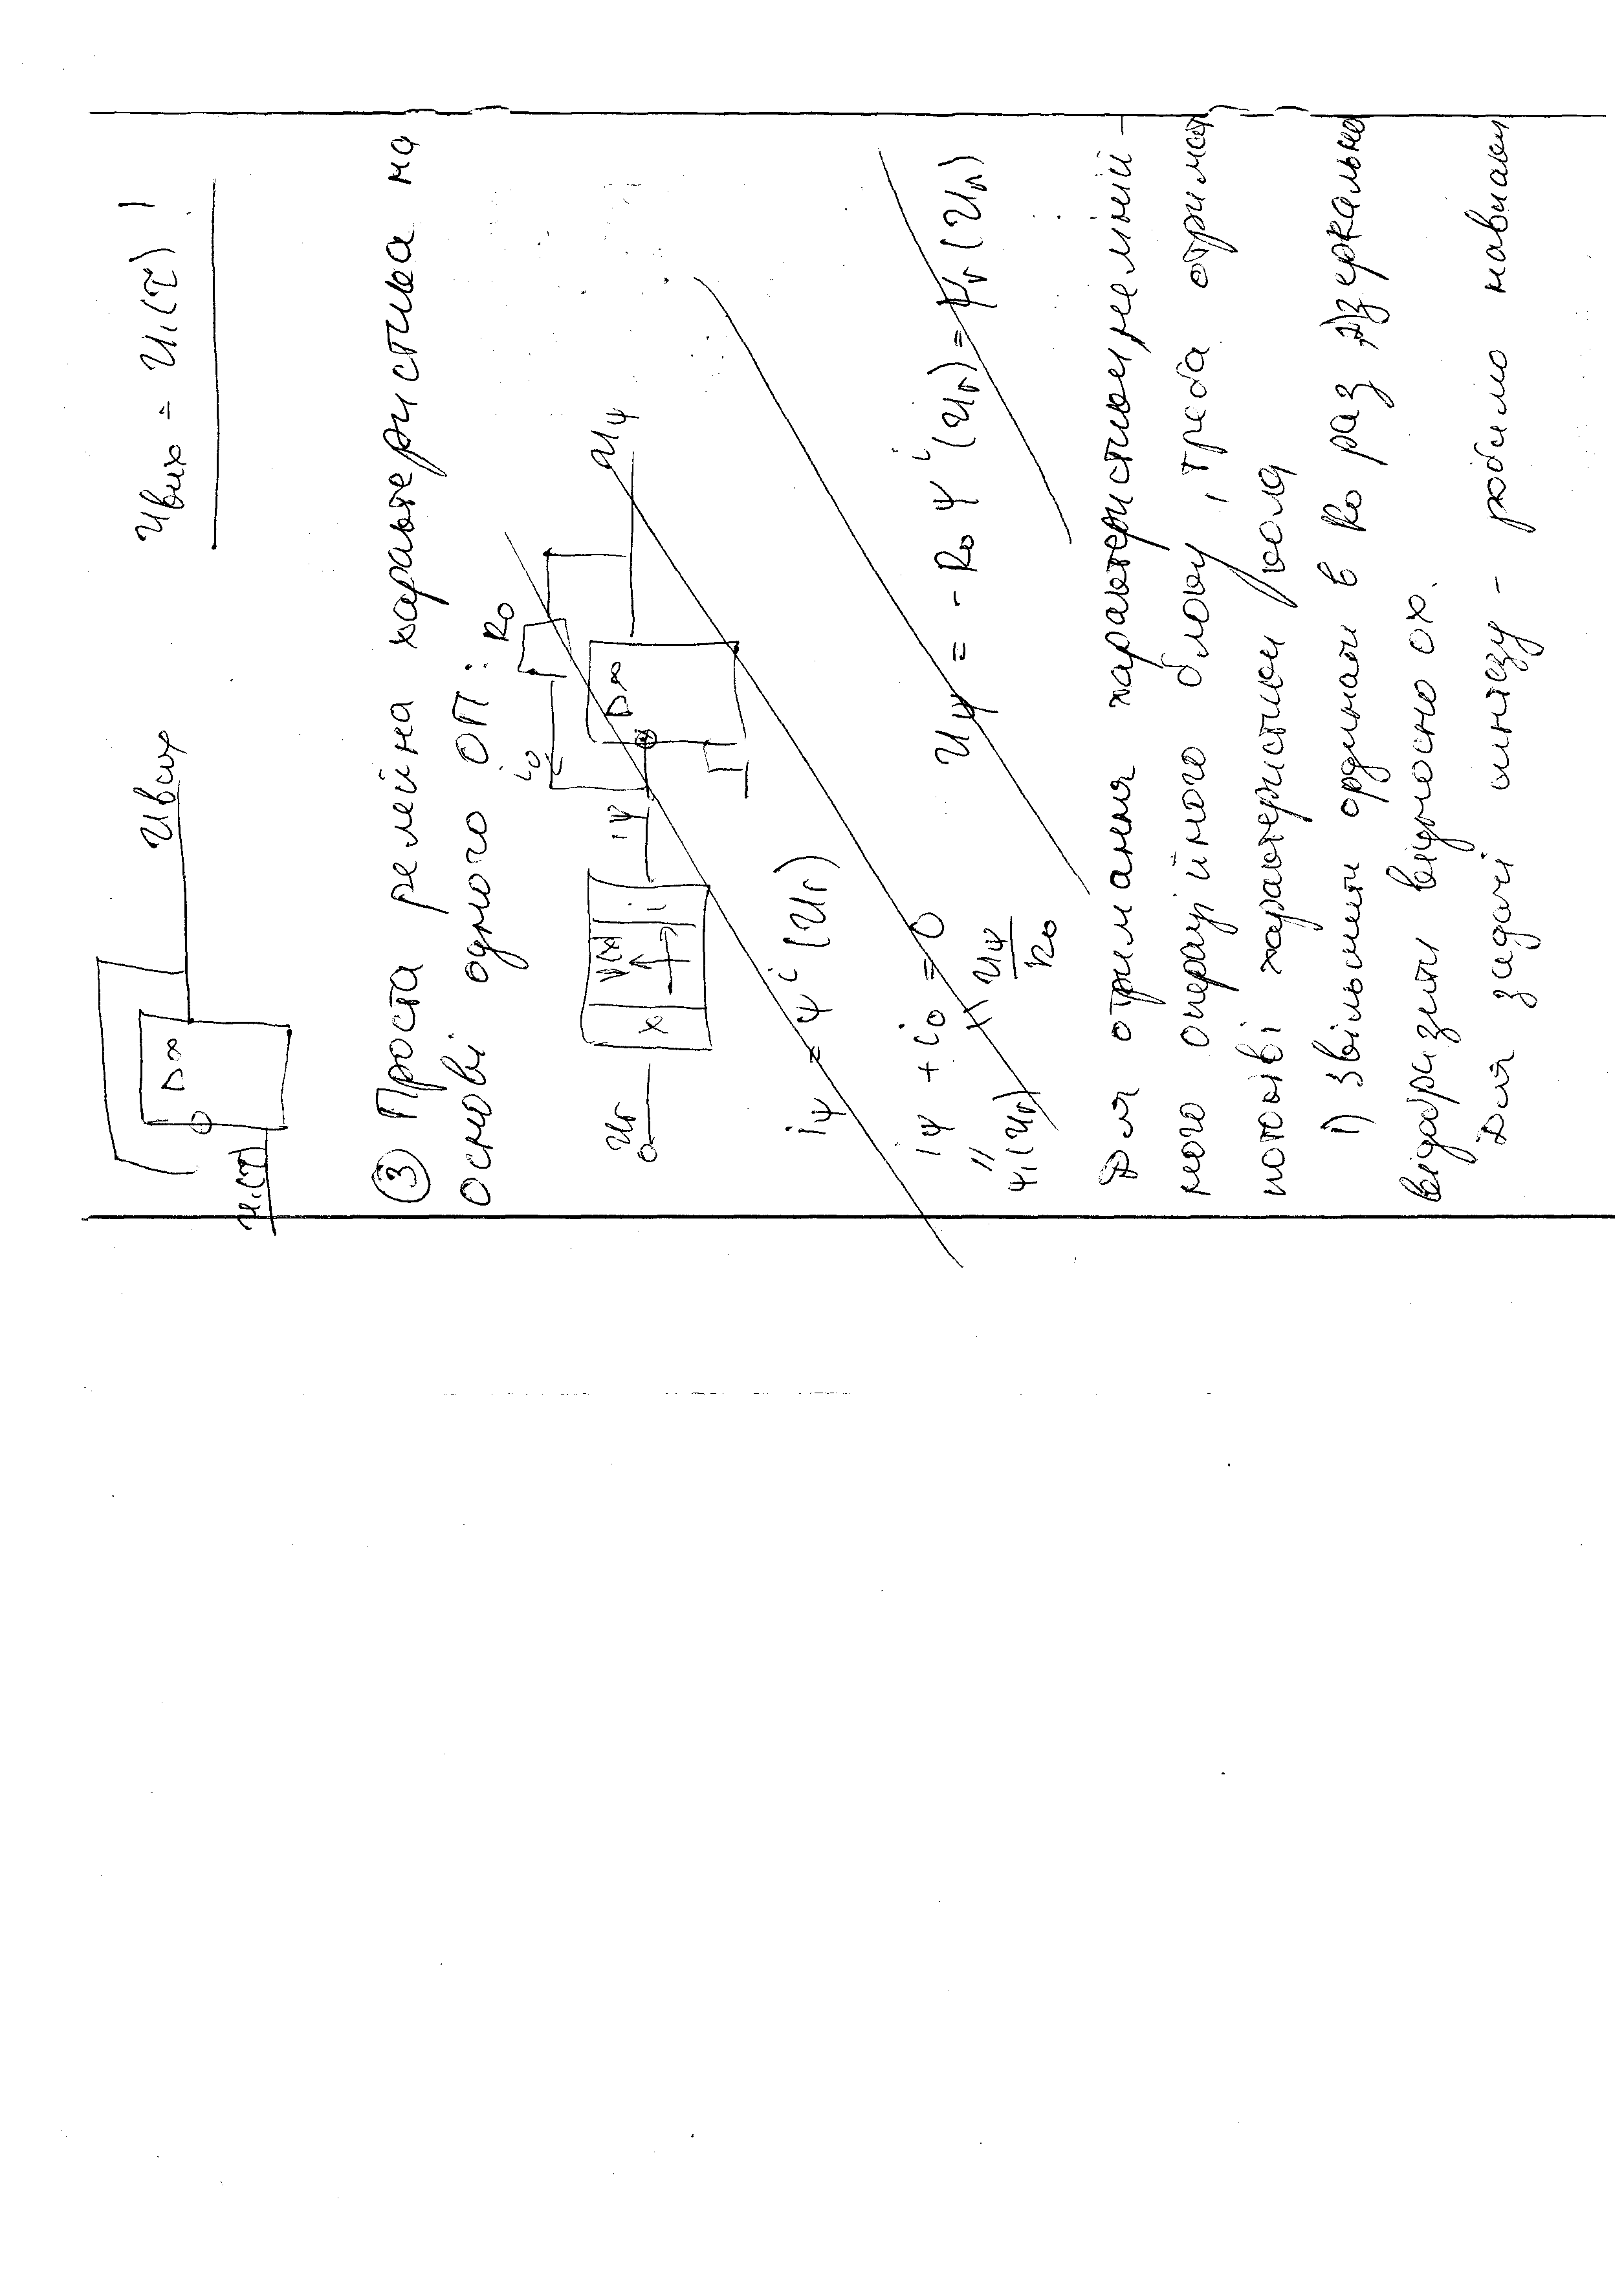 D∞
Uвих
U₁(τ)
Uвих = U₁(τ) !
③ Проста релейна характеристика на
основі одного ОП:
R₀
i₀
Uг
x
i
iψ
D∞
Uψ
iψ = ψⁱ(Uг)
iψ + i₀ = 0
Uψ = - R₀ ψⁱ(Uг) = ψг(Uг)
ψ₁(Uг)
Uψ/R₀
Для отримання характеристики нелиній-
ного операційного блоку, треба отримат
потокві характеристики кола
1) звільшити ординати в R₀ раз 2) зеркально
відобразити відносно ОХ.
Для задачі синтезу - робимо навпаки